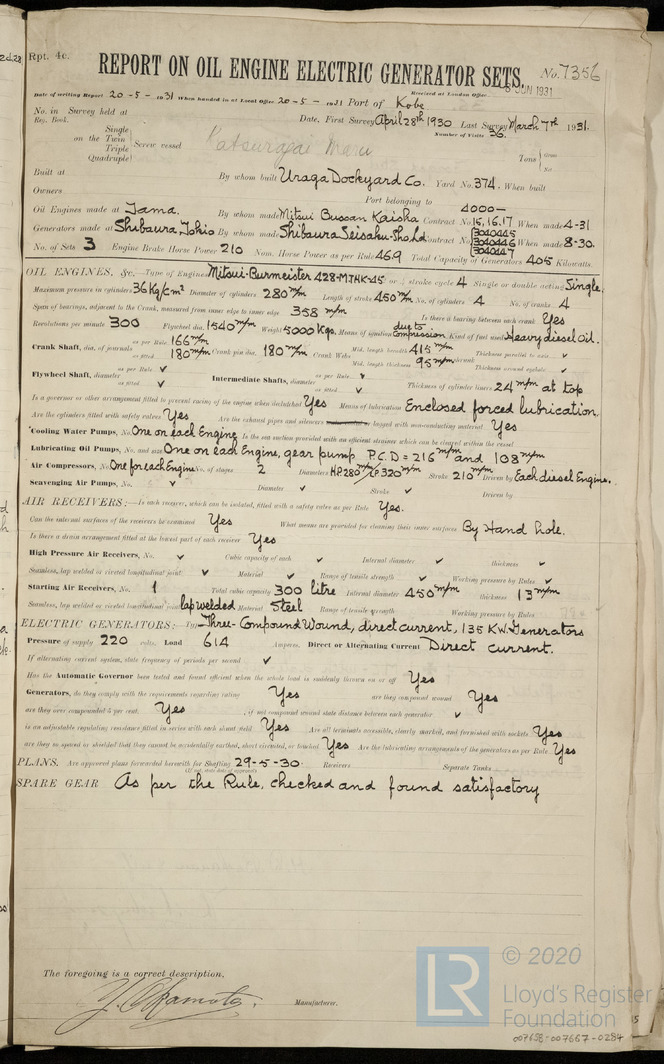 Rpt. 4c.
REPORT ON OIL ENGINE ELECTRIC GENERATOR SETS.
No. 7356
6 JUN 1931
Date of writing Report 20-5-1931 When handed in at Local Office 20-5-1931 Port of Kobe Received at London Office
No. in Reg. Book. Survey held at Date, First Survey April 28th 1930 Last Survey March 7th 1931.
Number of Visits 36.
on the Single Twin Triple Quadruple Screw vessel Katsuragi Maru Tons Gross Net
Built at By whom built Uraga Dockyard Co. Yard No. 374. When built
Owners Port belonging to
Oil Engines made at Tama. By whom made Mitsui Bussan Kaisha Contract No. 4000-15,16,17 When made 4-31
Generators made at Shibaura, Tokio By whom made Shibaura Seisaku-Sho, Ld Contract No. 3040445 3040446 3040447 When made 8-30.
No. of Sets 3 Engine Brake Horse Power 210 Nom. Horse Power as per Rule 469 Total Capacity of Generators 405 Kilowatts.
OIL ENGINES, &c.—Type of Engines Mitsui-Burmeister 428-MTHK-45 or stroke cycle 4 Single or double acting Single.
Maximum pressure in cylinders 36 Kg/cm² Diameter of cylinders 280 m/m Length of stroke 450 m/m No. of cylinders 4 No. of cranks 4
Span of bearings, adjacent to the Crank, measured from inner edge to inner edge 358 m/m Is there a bearing between each crank Yes
Revolutions per minute 300 Flywheel dia. 1540 m/m Weight 5000 Kgs. Means of ignition due to Compression Kind of fuel used Heavy diesel Oil.
Crank Shaft, dia. of journals as per Rule 166 m/m as fitted 180 m/m Crank pin dia. 180 m/m Crank Webs Mid. length breadth 415 m/m Mid. length thickness 95 m/m shrunk Thickness parallel to axis ✓ Thickness around eyehole ✓
Flywheel Shaft, diameter as per Rule ✓ as fitted ✓ Intermediate Shafts, diameter as per Rule ✓ as fitted ✓ Thickness of cylinder liners 24 m/m at top
Is a governor or other arrangement fitted to prevent racing of the engine when declutched Yes Means of lubrication Enclosed forced lubrication.
Are the cylinders fitted with safety valves Yes Are the exhaust pipes and silencers lagged with non-conducting material Yes
Cooling Water Pumps, No. One on each Engine Is the sea suction provided with an efficient strainer which can be cleared within the vessel
Lubricating Oil Pumps, No. and size One on each Engine, gear pump P.C.D = 216 m/m and 108 m/m
Air Compressors, No. One for each Engine No. of stages 2 Diameters HP 280 m/m LP 320 m/m Stroke 210 m/m Driven by Each diesel Engine.
Scavenging Air Pumps, No. ✓ Diameter ✓ Stroke ✓ Driven by
AIR RECEIVERS:—Is each receiver, which can be isolated, fitted with a safety valve as per Rule Yes.
Can the internal surfaces of the receivers be examined Yes What means are provided for cleaning their inner surfaces By Hand hole.
Is there a drain arrangement fitted at the lowest part of each receiver Yes
High Pressure Air Receivers, No. ✓ Cubic capacity of each ✓ Internal diameter ✓ thickness ✓
Seamless, lap welded or riveted longitudinal joint ✓ Material ✓ Range of tensile strength ✓ Working pressure by Rules ✓
Starting Air Receivers, No. 1 Total cubic capacity 300 litre Internal diameter 450 m/m thickness 13 m/m
Seamless, lap welded or riveted longitudinal joint lap welded Material Steel Range of tensile strength Working pressure by Rules
ELECTRIC GENERATORS:—Type Three-Compound Wound, direct current, 135 KW. Generators
Pressure of supply 220 volts. Load 614 Amperes. Direct or Alternating Current Direct current.
If alternating current system, state frequency of periods per second ✓
Has the Automatic Governor been tested and found efficient when the whole load is suddenly thrown on or off Yes
Generators, do they comply with the requirements regarding rating Yes are they compound wound Yes
are they over compounded 5 per cent. Yes, if not compound wound state distance between each generator ✓
is an adjustable regulating resistance fitted in series with each shunt field Yes Are all terminals accessible, clearly marked, and furnished with sockets Yes
are they so spaced or shielded that they cannot be accidentally earthed, short circuited, or touched Yes Are the lubricating arrangements of the generators as per Rule Yes
PLANS. Are approved plans forwarded herewith for Shafting 29-5-30 Receivers Separate Tanks
(If not, state date of approval)
SPARE GEAR As per the Rule, checked and found satisfactory
The foregoing is a correct description.
Y. Okamoto, Manufacturer.
© 2020
LR
Lloyd's Register
Foundation
007658-007667-0284